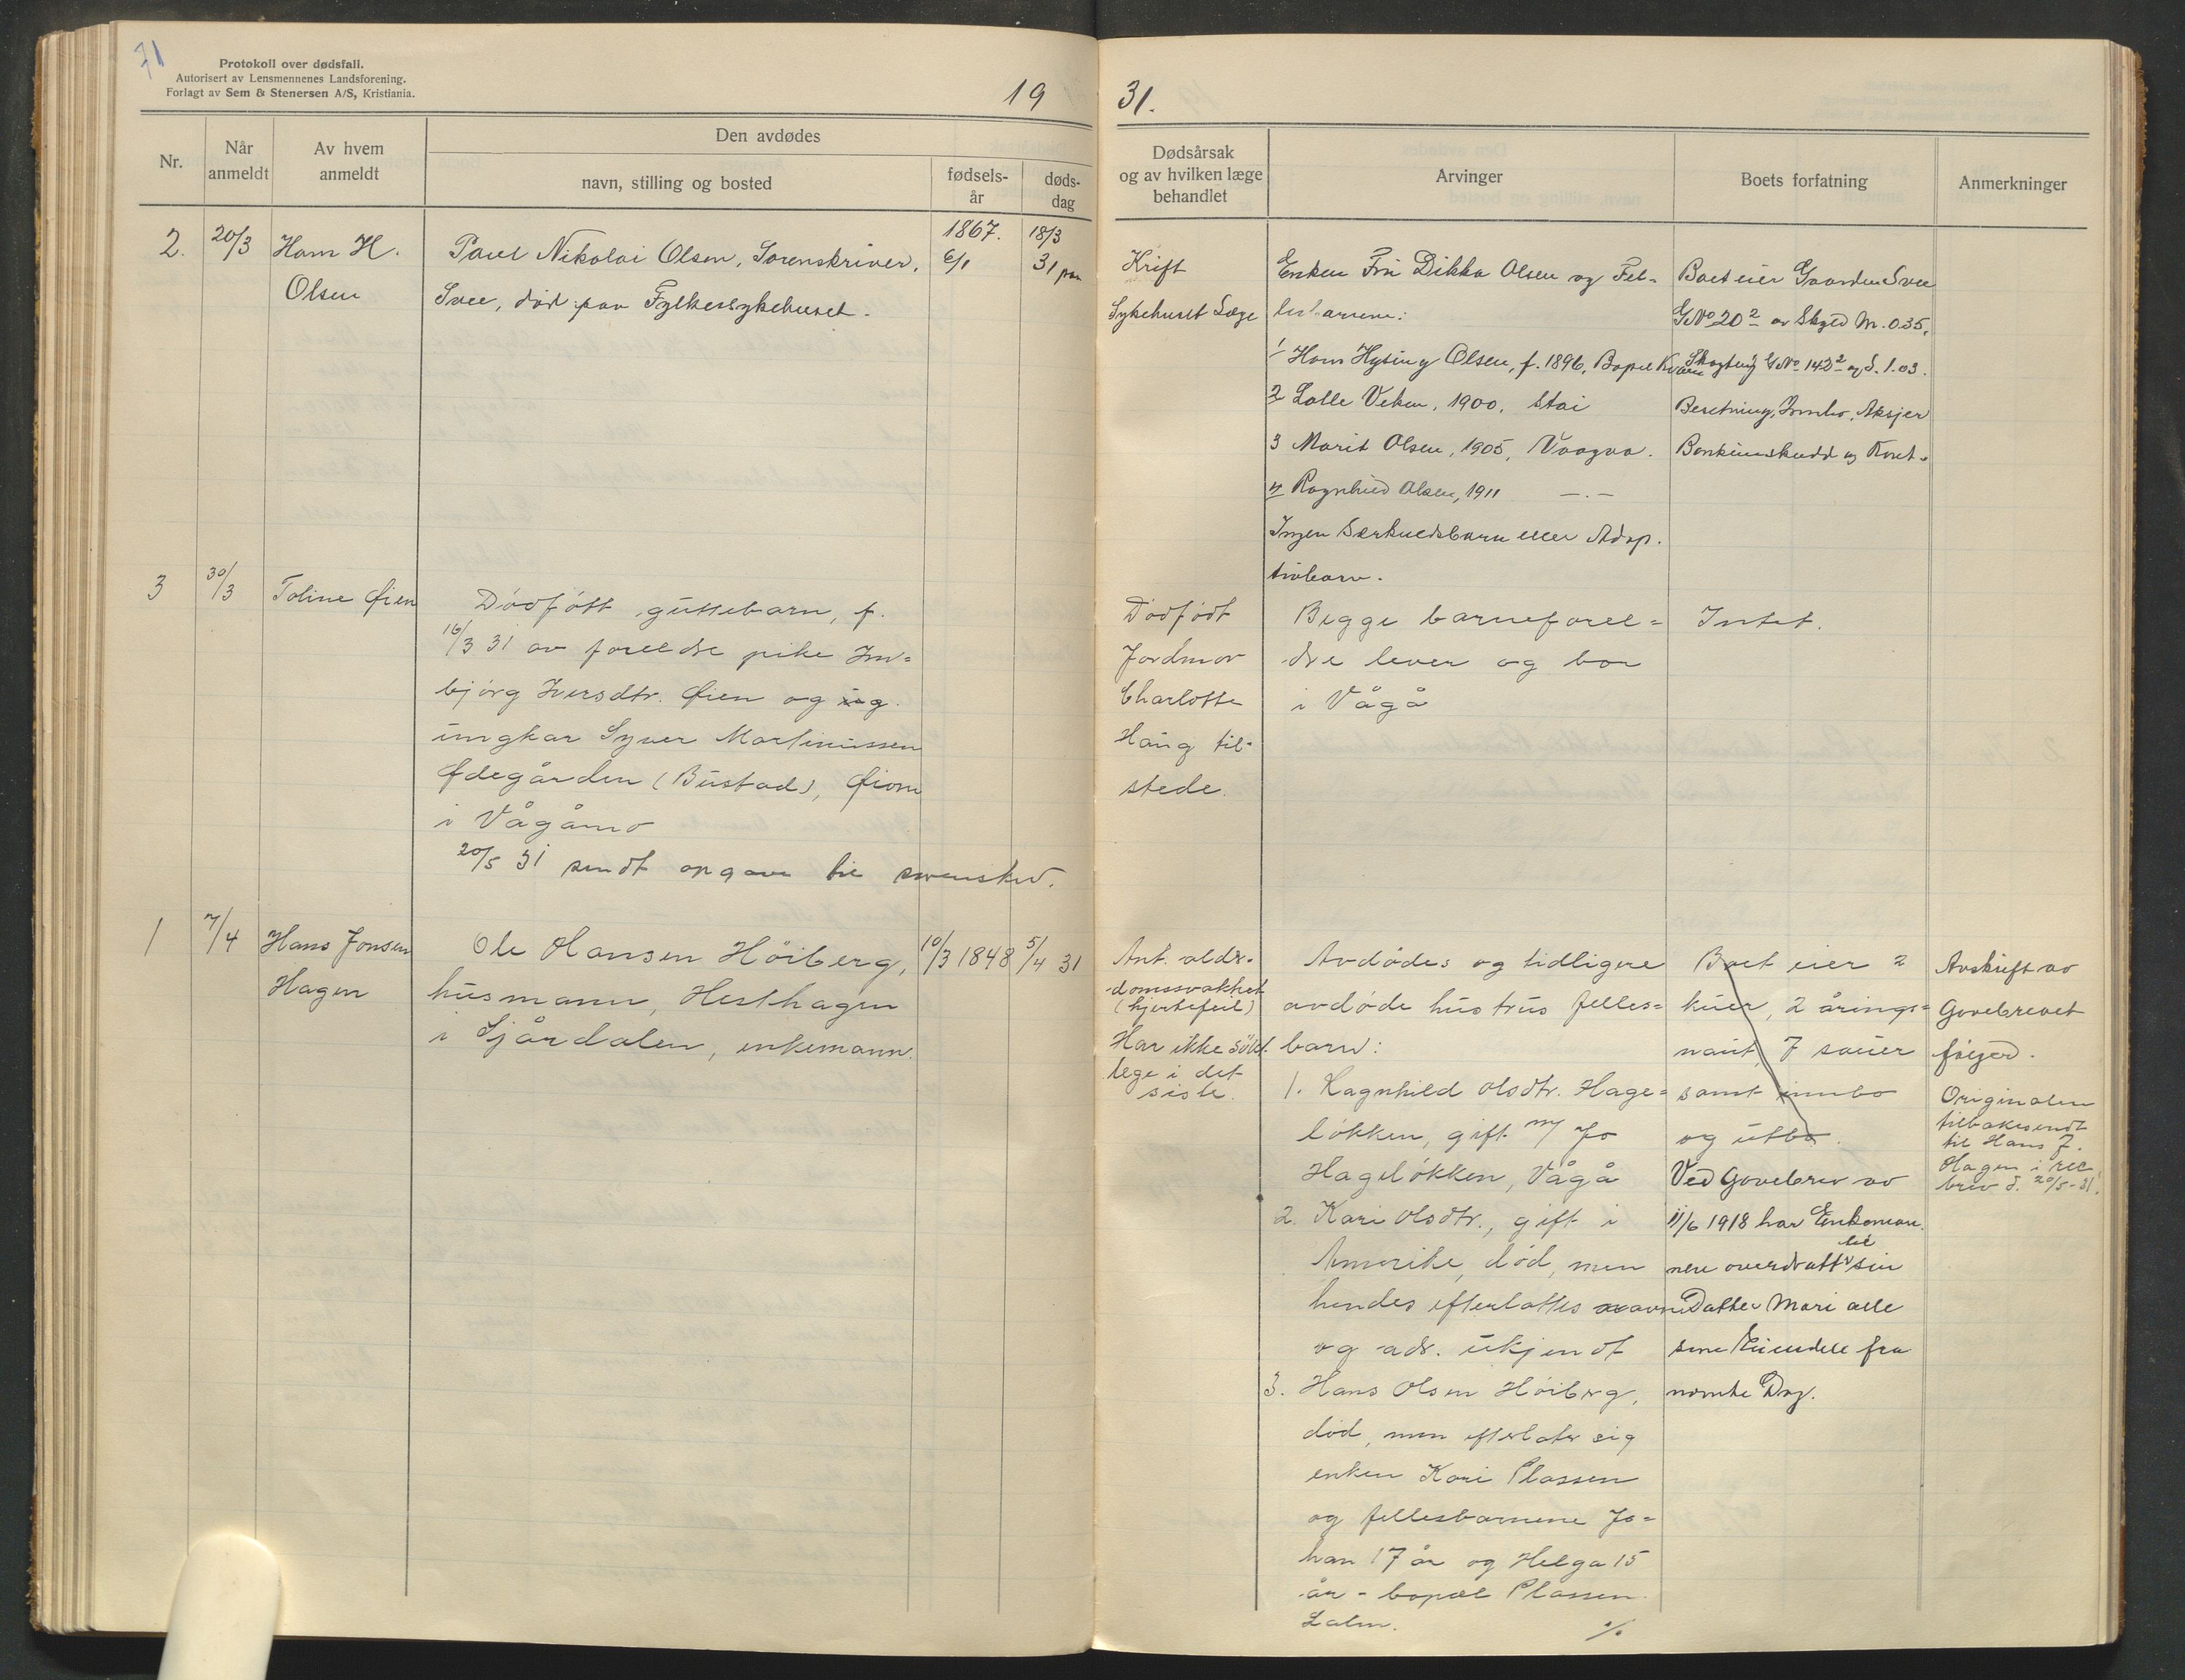 71
Protokoll over dødsfall.
Autorisert av Lensmennenes Landsforening.
Forlagt av Sem & Stenersen A/S, Kristiania.
19
31.
Nr.
Når
anmeldt
Av hvem
anmeldt
Den avdødes
navn, stilling og bosted
fødsels-
år
døds-
dag
Dødsårsak
og av hvilken læge
behandlet
Arvinger
Boets forfatning
Anmerkninger
2.
20/3
Hans H.
Olsen
Paul Nikolai Olsen, Sorenskriver,
Svee, død paa Fylkessykehuset.
1867.
6/1
18/3
31
Kræft
Sykehuset Læge
Enken Fru Dikka Olsen og Fel-
lesbarnene:
1 Hans Hysing Olsen, f. 1896, Bopæl Kvam
2 Lalle Veken, 1900, Stai
3 Marit Olsen, 1905, Vaagaa.
4 Ragnhild Olsen, 1911 —.—
Ingen Særkuldsbarn eller Adop-
tivbarn.
Boet eier Gaarden Svee
GNo 20 2 av Skyld M. 0.35,
Skogteig GNo 142 2 af S. 1.03.
Besetning, Innbo, Aksjer
Bankinnskudd og Kont.
3
30/3
Toline Øien
Dødfött guttebarn, f.
16/3 31 av foreldre pike Im=
björg Iversdtr. Øien og
ungkar Syver Martinussen
Ødegården (Bustad), Øien
i Vågåmo
20/5 31 sendt opgave til sorenskrd.
Dödfödt
Jordmor
Charlotte
Haug til-
stede.
Begge barneforel=
dre lever og bor
i Vågå
Intet.
1
7/4
Hans Jonsen
Hagen
Ole Hansen Höiberg,
husmann, Hesthagen
i Sjårdalen, enkemann.
10/3 1848
5/4 31
Ant. alder-
domssvakhet
(hjertefeil)
Har ikke sökt
lege i det
siste.
Avdödes og tidligere
avdöde hustrus felles=
barn:
1. Ragnhild Olsdtr. Hage=
lökken, gift m/ Jo
Hagelökken, Vågå
2. Kari Olsdtr., gift i
Amerike, död, men
hendes efterlattes navn
og adr. ukjendt
3. Hans Olsen Höiberg,
död, men efterlater sig
enken Kari Plassen
og fellesbarnene Jo=
han 17 år og Helga 15
år - bopæl Plassen
Lalm.
./.
Boet eier 2
kuer, 2 årings=
naut, 7 sauer
samt innbo
og utbo.
Ved Gavebrev av
11/6 1918 har Enkeman-
nen overdratt til sin
Datter Mari alle
sine Eiendele fra
nevnte Dag.
Avskrift av
Gavebrevet
följer.
Originalen
tilbakesendt
til Hans J.
Hagen i rec
brev d. 20/5-31.